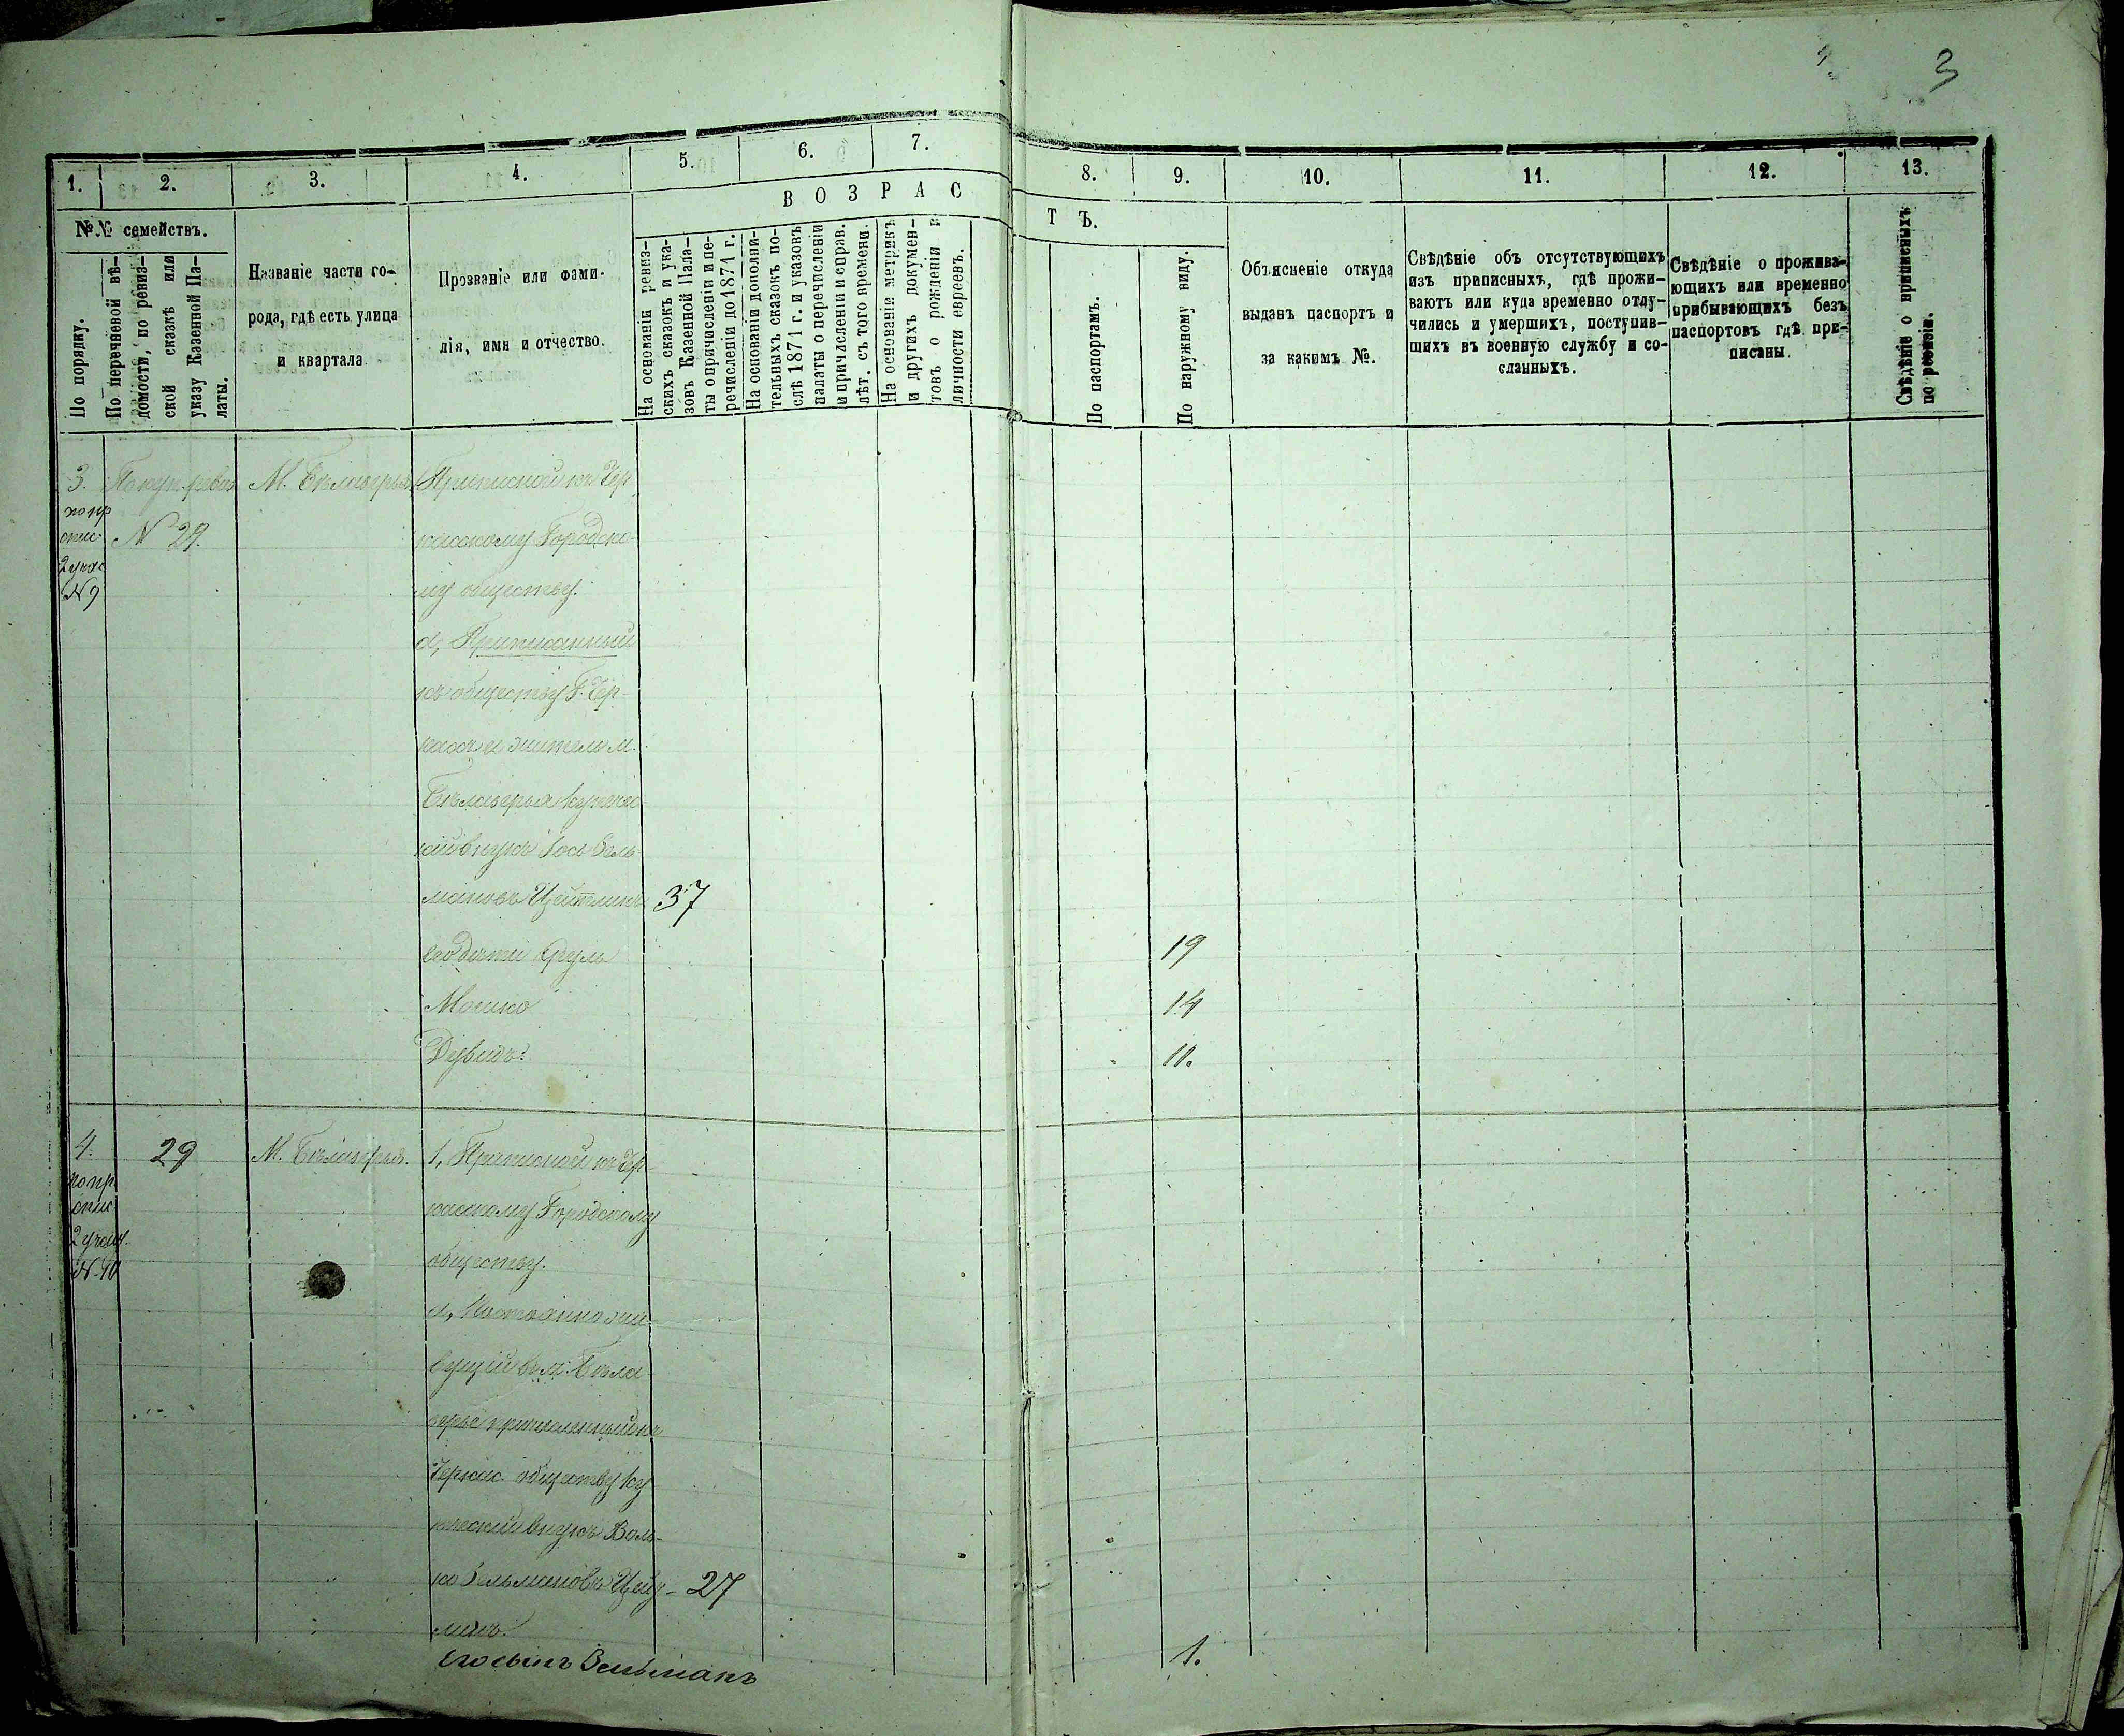 3
1.
2.
3.
4.
5.
6.
7.
8.
9.
10.
11.
12.
13.
В О З Р А С
Т Ъ.
№№ семействъ.
По порядку.
По перечневой вѣ-
домости, по ревиз-
ской сказкѣ или
указу Казенной Па-
латы.
Названіе части го-
рода, гдѣ есть улица
и квартала
Прозваніе или фами-
лія, имя и отчество.
На основаніи ревиз-
скихъ сказокъ и ука-
зовъ Казенной Пала-
ты о причисленіи и пе-
речисленіи до 1871 г.
На основаніи дополни-
тельныхъ сказокъ по-
слѣ 1871 г. и указовъ
палаты о перечисленіи
и причисленіи и справ.
лѣт. съ того времени.
На основаніи метрикъ
и другихъ докумен-
товъ о рожденіи и
личности евреевъ.
По паспортамъ.
По наружному виду.
Объясненіе откуда
выданъ паспортъ и
за какимъ №.
Свѣдѣніе объ отсутствующихъ
изъ приписныхъ, гдѣ прожи-
ваютъ или куда временно отлу-
чились и умершихъ, поступив-
шихъ въ военную службу и со-
сланныхъ.
Свѣдѣніе о прожива-
ющихъ или временно
прибывающихъ безъ
паспортовъ гдѣ при-
писаны.
Свѣдѣніе о приписныхъ
по ревизіи.
3.
по пр
спис.
2 учас
№ 9
№ 29.
М. Бѣлозерье
Приписной къ Чер
касскому Городско-
му обществу.
а, Приписанный
къ обществу Г. Чер-
кассъ и житель м.
Бѣлозерья купечес-
кій внукъ Іось Зель-
мановъ Цейтлинъ 37
его дѣти Сруль 19
Мошко 14
Дувидъ. 11.
4.
по пр.
спис
2 участ.
№ 10
29
М. Бѣлозерья.
1, Приписной къ Чер-
касскому Городскому
обществу.
а, Постоянно жи-
вущій въ м. Бѣло-
зерье причисленный къ
Черкас. обществу Ку
печескій внукъ Воль-
ко Зельмановъ Цейт- 27
линъ.
Его сынъ Зельманъ 1.